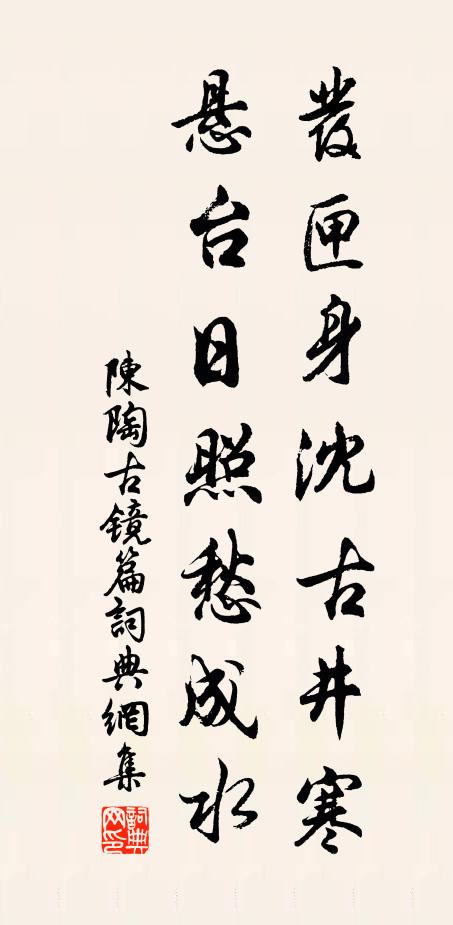 發匣身沈古井寒
懸台日照愁成水
陳陶古镜篇詞典網集
詞典網印